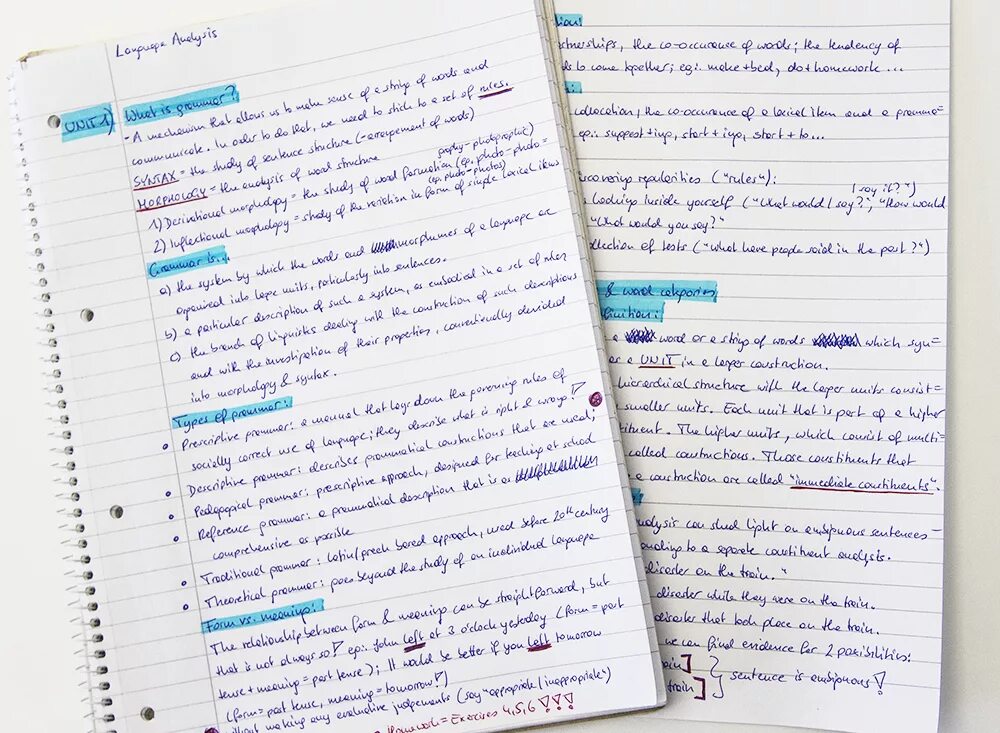 Language Analysis
UNIT 1) What is grammar?
- A mechanism that allows us to make sense of a string of words and
communicate. In order to do that, we need to stick to a set of rules.
SYNTAX = the study of sentence structure (= arrangement of words)
MORPHOLOGY = the analysis of word structure
graphy - photographic)
1) Derivational morphology = the study of word formation (eg. photo - photo =
(eg. photo - photos)
2) Inflectional morphology = study of the variation in form of single lexical items
Grammar is...
a) the system by which the words and morphemes of a language are
organized into large units, particularly into sentences.
b) a particular description of such a system, as embodied in a set of rules
c) the branch of linguistics dealing with the construction of such descriptions
and with the investigation of their properties, conventionally divided
into morphology & syntax.
Types of grammar:
Prescriptive grammar: a manual that lays down the governing rules of
socially correct use of language; they describe what is right & wrong!
Descriptive grammar: describes grammatical constructions that are used;
Pedagogical grammar: prescriptive approach, designed for teaching at school
Reference grammar: a grammatical description that is as
comprehensive as possible
Traditional grammar: latin/greek based approach, used before 20th century
Theoretical grammar: goes beyond the study of an individual language
Form vs. meaning:
The relationship between form & meaning can be straightforward, but
that is not always so! eg: John left at 3 o'clock yesterday (form = past
tense + meaning = past tense); It would be better if you left tomorrow
(form = past tense, meaning = tomorrow!)
without making any evaluative judgements (say "appropriate/inappropriate")
Homework = Exercises 4,5,6 !!!
tion:
tnerships, the co-occurance of words; the tendency of
ds to come together; eg: make + bed, do + homework ...
:
collocation, the co-occurance of a lexical item and a gramma=
eg.: suggest + ing, start + ing, start + to...
scovering regularities ("rules"):
I say it?")
s Looking inside yourself ("What would I say?", "How would
"What would you say?"
ollection of texts ("What have people said in the past?")
& word categories
finition:
e a word or a string of words which syn=
as a UNIT in a larger construction.
hierarchical structure with the larger units consist=
smaller units. Each unit that is part of a higher
stituent. The higher units, which consist of multi=
called constructions. Those constituents that
e a construction are called "immediate constituents".
:
nalysis can shed light on ambiguous sentences
onding to a separate constituent analysis.
disaster on the train."
disaster while they were on the train.
disaster that took place on the train.
we can find evidence for 2 possibilities:
train]
train]
sentence is ambiguous!